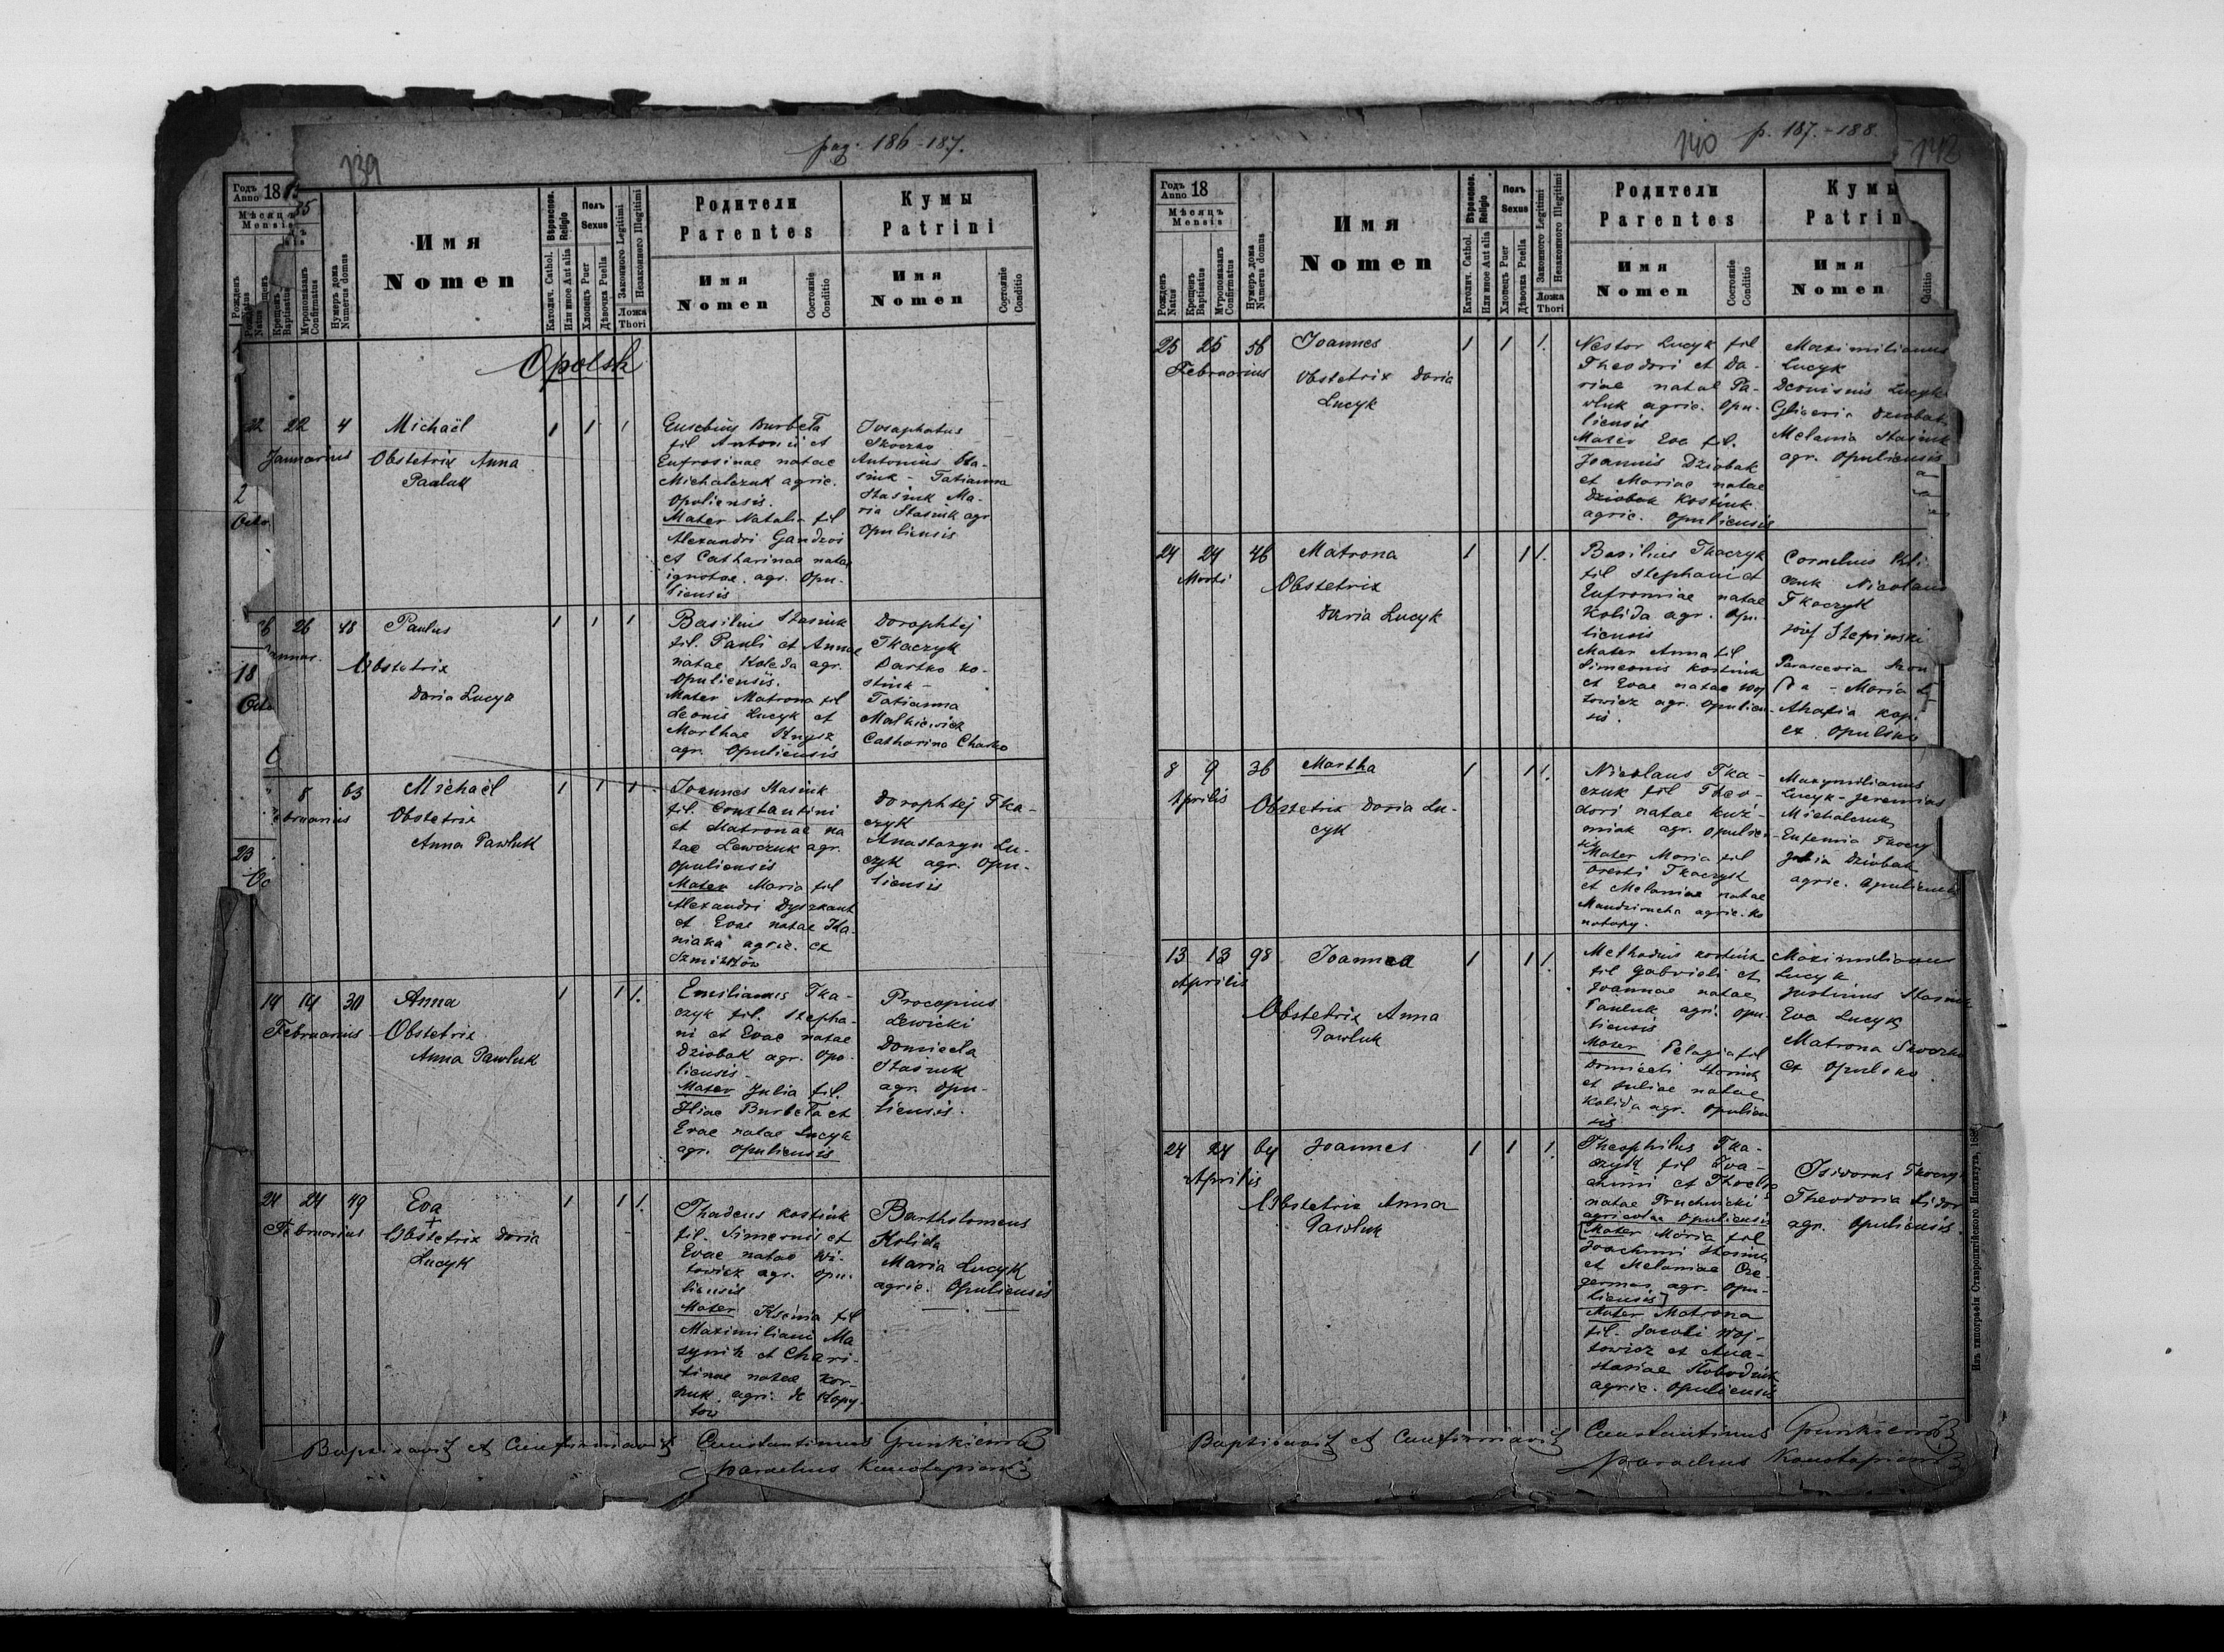 139
pag. 186-187.
Годъ Anno 18
35
Мѣсяцъ
Mensis
Рожденъ Natus
Крещенъ Baptisatus
Мѵропомазанъ Confirmatus
Нумеръ дома
Numerus domus
Имя
Nomen
Вѣроиспов.
Religio
Католич. Cathol.
Или иное Aut alia
Полъ
Sexus
Хлопецъ Puer
Дѣвочка Puella
Законного Legitimi
Незаконного Illegitimi
Ложа
Thori
Родители
Parentes
Имя
Nomen
Состояніе
Conditio
Кумы
Patrini
Имя
Nomen
Состояніе
Conditio
Opolsk
22 22 4 Michaël 1 1 1
Januarius Obstetrix Anna
Pauluk
Eusebius Burbeła
fil Antonii et
Eufrosinae natae
Michalczuk agric.
Opuliensis.
Mater Natalia fil
Alexandri Gandzoi
et Catharinae natae
ignotae. agr. Opu-
liensis
Josaphatus
Skoczko
Antonius Sta-
siuk - Tatianna
Stasiuk Ma-
ria Stasiuk agr
Opuliensis
26 48 Paulus 1 1 1
Obstetrix
Daria Lucyk
Basilius Stasiuk
fil. Pauli et Annae
natae Koleda agr.
Opuliensis.
Mater Matrona fil
Leonis Lucyk et
Marthae
agr. Opuliensis
Dorophtej
Tkaczyk
Bartko Ko-
stiuk -
Tatianna
Malkiewicz
Catharina
8 63 Michaël 1 1 1
Obstetrix
Anna Pawluk
Joannes Stasiuk
fil. Constantini
et Matronae na
tae Lewczuk agr.
Opuliensis
Mater Maria fil
Alexandri Dyszkant
et Evae natae
agric. ex
Dorophtej Tka-
czyk
Anastazya Lu-
czyk agr. Opu-
liensis
14 14 30 Anna 1 1 1.
Februarius Obstetrix
Anna Pawluk
Emilianus Tka-
czyk fil. Stepha-
ni et Evae natae
Dziobak agr. Opo-
liensis -
Mater Julia fil.
Iliae Burbeła et
Evae natae Lucyk
agr. Opuliensis
Procopius
Lewicki
Domicela
Stasiuk
agr. Opu-
liensis.
24 24 49 Eva 1 1 1.
Februarius Obstetrix Daria
Lucyk
Thadeus Kostiuk
fil. Simeonis et
Evae natae Wi-
towicz agr. Opu-
liensis
Mater Ksenia fil
Maximiliani Ma
zynik et Chari-
tinae natae Kor-
puk agr. Kopy-
tow
Bartholomeus
Kolida
Maria Lucyk
agric. Opuliensis
Baptisavit et Confirmavit Constantinus
Parochus
140
p. 187.-188.
142
Годъ Anno 18
Мѣсяцъ
Mensis
Рожденъ Natus
Крещенъ Baptisatus
Мѵропомазанъ Confirmatus
Нумеръ дома
Numerus domus
Имя
Nomen
Вѣроиспов.
Religio
Католич. Cathol.
Или иное Aut alia
Полъ
Sexus
Хлопецъ Puer
Дѣвочка Puella
Законного Legitimi
Незаконного Illegitimi
Ложа
Thori
Родители
Parentes
Имя
Nomen
Состояніе
Conditio
Кумы
Patrin
Имя
Nomen
25 25 56 Joannes 1 1 1.
Februarius Obstetrix Daria
Lucyk
Nestor Lucyk fil
Theodori et Da-
riae natae Pa-
wluk agric. Opu-
liensis
Mater Eva fil.
Joannis Dziobak
et Mariae natae
Dziobak Kostiuk
agric. Opuliensis
Maximilianus
Lucyk
Dionisius Lucyk
Gliceria Dziobak
Melania Stasiuk
agr. Opuliensis
24 24 46 Matrona 1 1 1.
Martii Obstetrix
Daria Lucyk
Basilius Tkaczyk
fil Stephani et
Eufromiae natae
Kolida agr. Opu-
liensis
Mater Anna fil
Simeonis Kostiuk
et Evae natae Woj
towicz agr. Opulien-
sis.
Cornelius Kli-
czuk Nicolaus
Tkaczyk
Józef Stepinski
Parascevia
Maria
Ahafia
ex Opulsko
8 9 36 Martha 1 1 1.
Aprilis Obstetrix Daria Lu-
cyk
Nicolaus Tka-
czuk fil Theo-
dori natae Kuź-
miak agr. Opulien-
sis
Mater Maria fil
Oresti Tkaczyk
et Melaniae natae
agric. Ko
notopy.
Maxymilianus
Lucyk - Jeremias
Michalczuk
Eufemia Tkaczy
Julia Dziobak
agric. Opuliensis
13 13 98 Joannea 1 1 1.
Aprilis
Obstetrix Anna
Pawluk
Methodius Kostiuk
fil Gabrieli et
Joannae natae
Pauluk agr. Opu-
liensis
Mater Pelagia fil
Domiceli Stasiuk
et Juliae natae
Kolida agr. Opulien
sis
Maximilianus
Lucyk
Justinus Stasiuk
Eva Lucyk
Matrona Skoczko
ex Opulsko
24 24 64 Joannes 1 1 1.
Aprilis
Obstetrix Anna
Pawluk
Theophilus Tka-
czyk fil Joa-
chimi et Theclae
natae Pruchnicki
agricolae Opuliensis
[Mater Maria fil
Joachimi Stasiuk
et Melaniae
agr. Opu-
liensis]
Mater Matrona
fil. Jacobi Woj-
towicz et Ana-
stasiae Slobodziuk
agric. Opuliensis
Isidorus Tkaczyk
Theodoria Sidor
agr. Opuliensis
Baptisavit et Confirmavit Constantinus
Parochus
Изъ типографіи Ставропигійского Института, 188